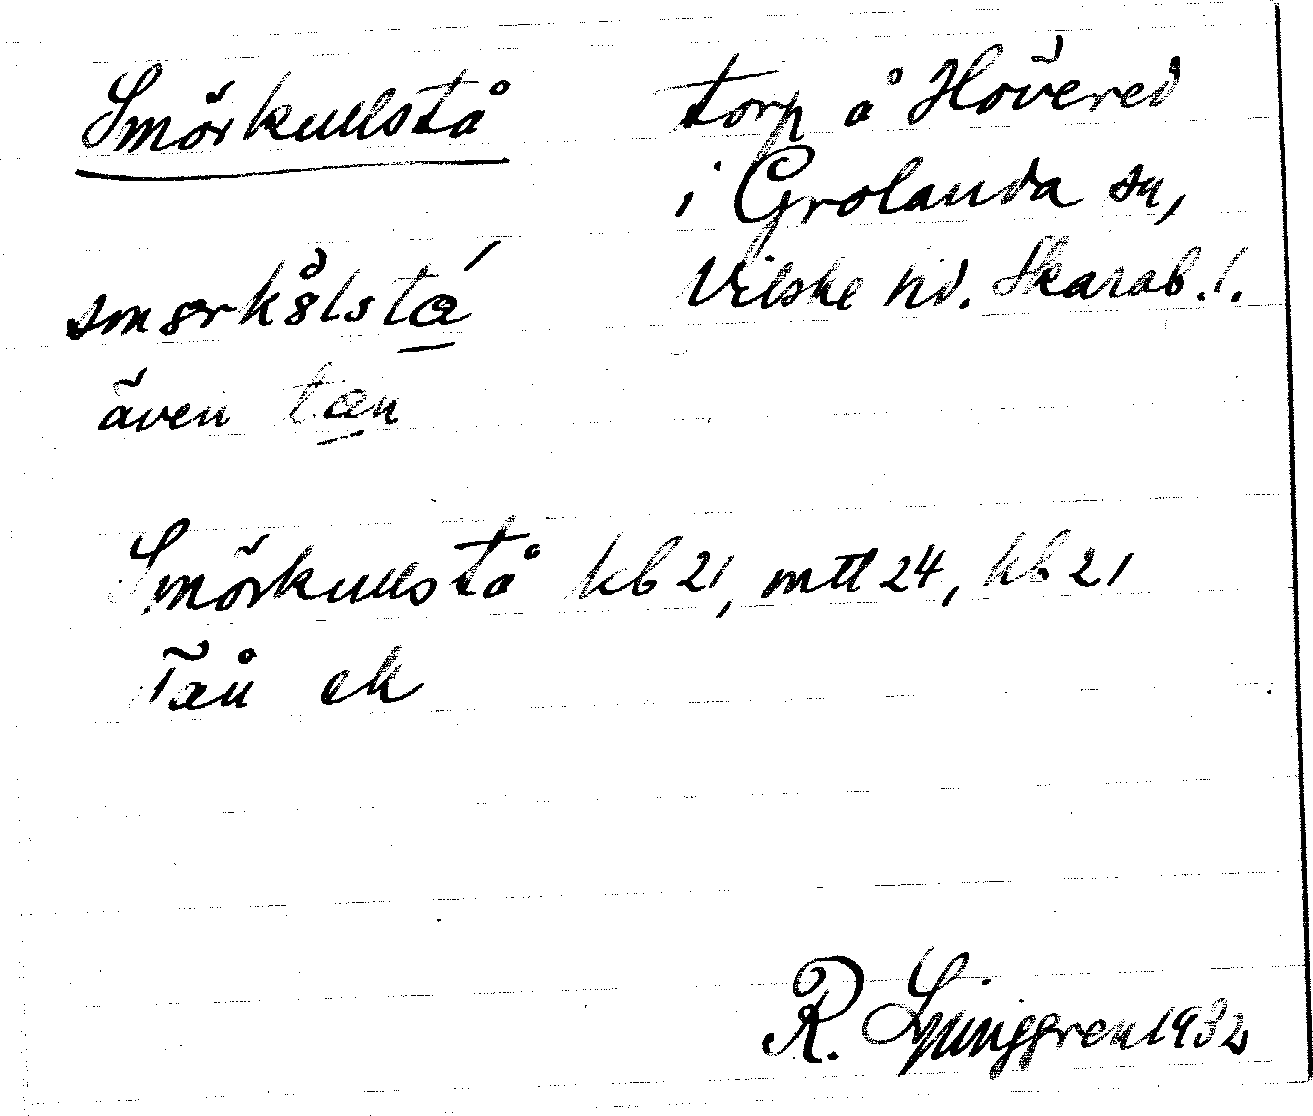 Smörkullstå
torp å Hövered
i Grolanda sn,
Vilske hd. Skarab.l.
även
Smörkullstå kb 21, mtl 24, hb 21
Tån ek
R. Ljunggren 1932